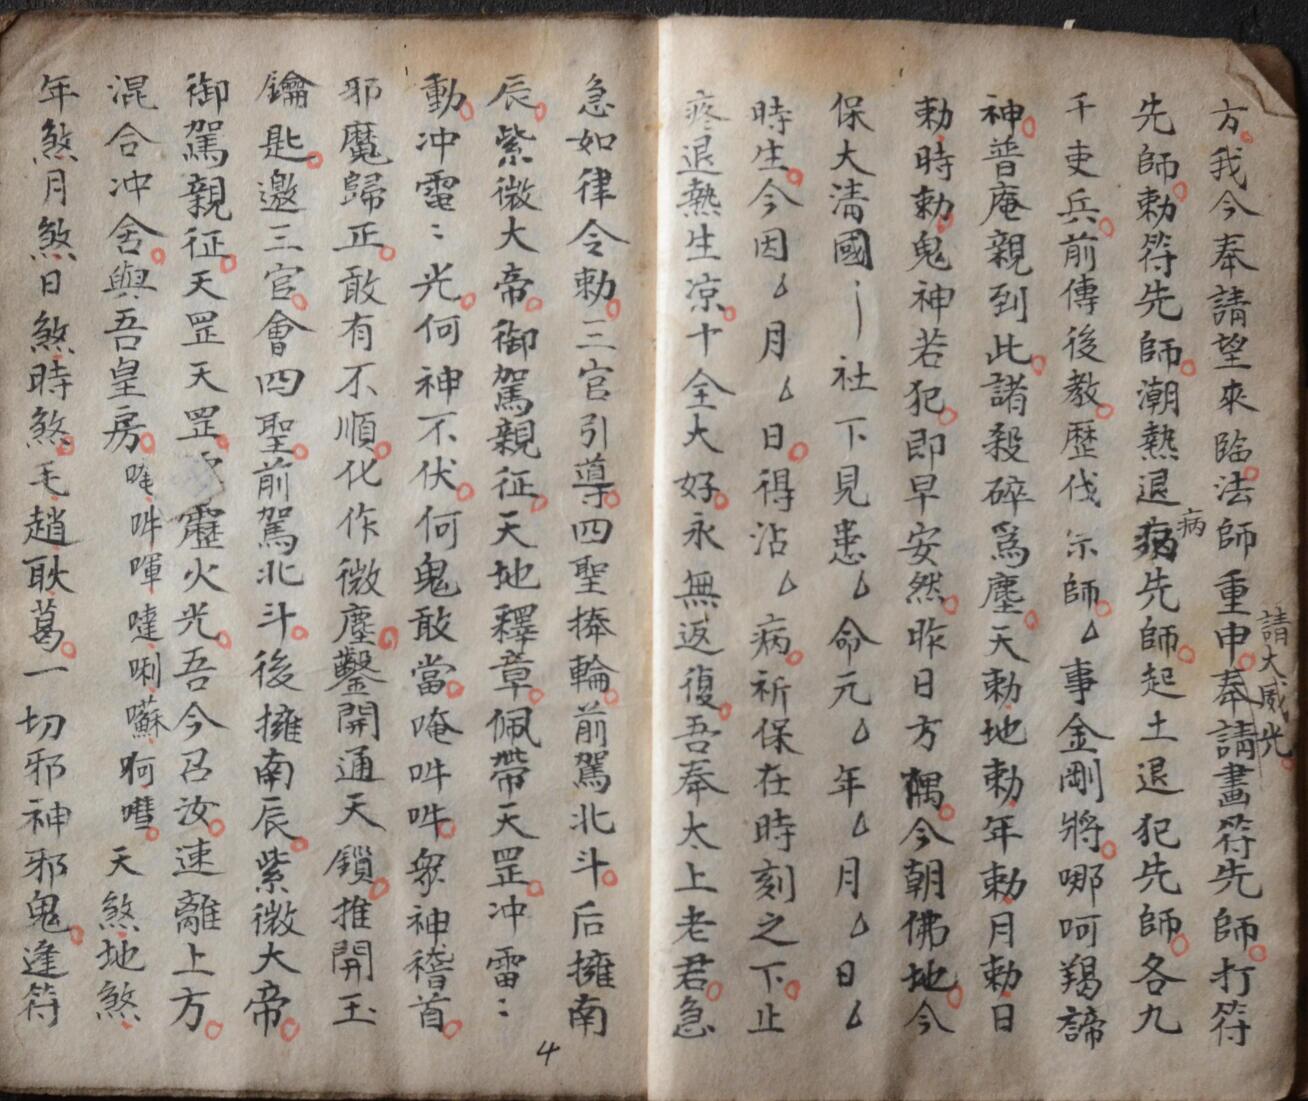 方我今奉請望來臨法師重申奉請畫符先師打符
請大威光
先師勅符先師潮熱退病先師起土退犯先師各九
病
千吏兵前傳後教歷伐宗師厶事金剛將哪呵羯諦
神普庵親到此諸殺碎爲塵天勅地勅年勅月勅日
勅時勅鬼神若犯即早安然昨日方隅今朝佛地今
保大清國丨社下見患厶命元厶年厶月厶日厶
時生今因厶月厶日得沾厶病祈保在時刻之下止
疼退熱生凉十全大好永無返復吾奉太上老君急
急如律令勅三官引導四聖捧輪前駕北斗后擁南
辰紫微大帝御駕親征天地釋章佩帶天罡冲雷:
動冲電:光何神不伏何鬼敢當唵吽吽衆神稽首
邪魔歸正敢有不順化作微塵鑿開通天鎖推開玉
鑰匙邀三官會四聖前駕北斗後擁南辰紫微大帝
御駕親征天罡天罡靂火光吾今召汝速離上方
混合冲舍與吾皇房唵吽㖷噠唎囌啊囈天煞地煞
年煞月煞日煞時煞毛趙耿葛一切邪神邪鬼逢符
4